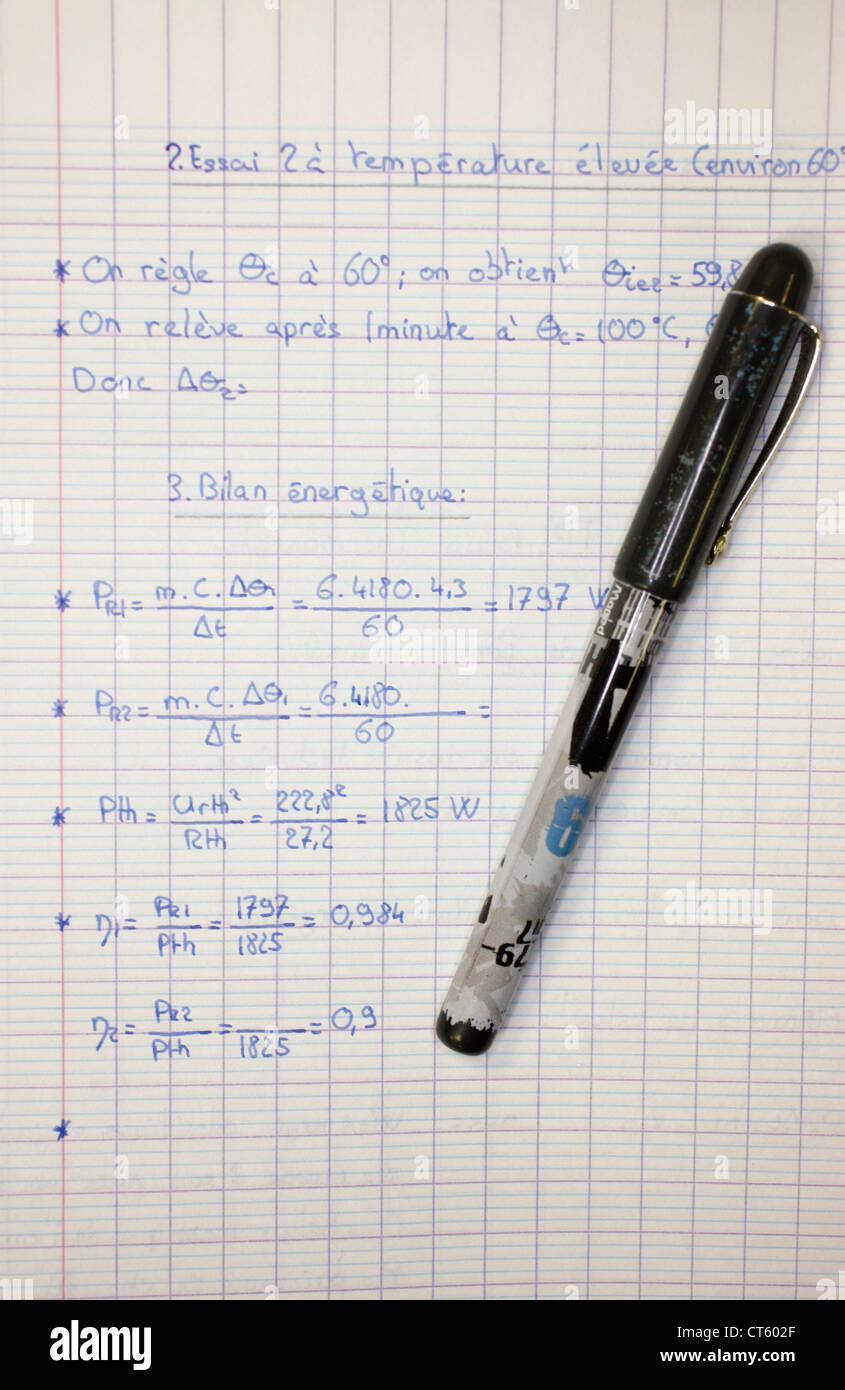 2. Essai 2 à température élevée (environ 60°
* On règle θc à 60°; on obtient θie2 = 59,8
* On relève après 1minute à θc = 100°C, θ
Donc Δθ2=
3. Bilan énergétique:
* PR1 = m.C.Δθ1 / Δt = 6.4180.4,3 / 60 = 1797 W
* PR2 = m.C.Δθ1 / Δt = 6.4180. / 60 =
* Pth = Urth² / Rth = 222,8² / 27,2 = 1825 W
* η1 = PR1 / Pth = 1797 / 1825 = 0,984
η2 = PR2 / Pth = / 1825 = 0,9
*
79
alamy
Image ID: CT602F
www.alamy.com